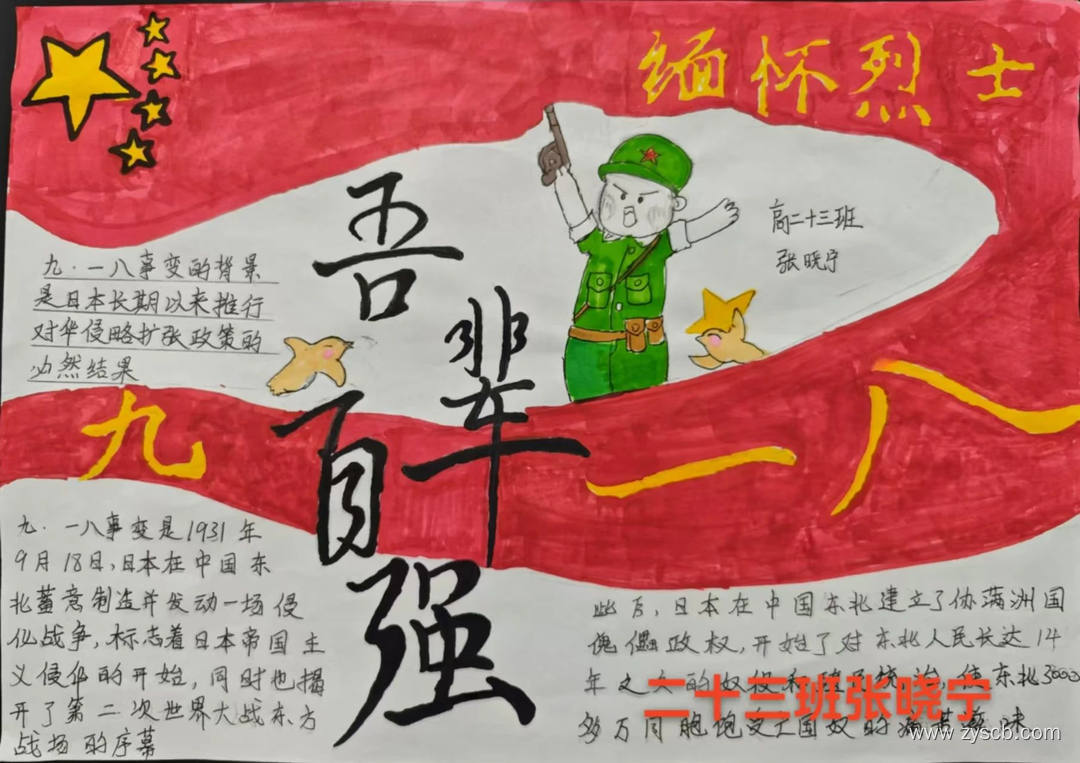 缅怀烈士
吾辈自强
高二十三班
张晓宁
九·一八事变的背景
是日本长期以来推行
对华侵略扩张政策的
必然结果
九一八
九·一八事变是1931年
9月18日,日本在中国东
北蓄意制造并发动一场侵
华战争,标志着日本帝国主
义侵华的开始,同时也揭
开了第二次世界大战东方
战场的序幕
此后,日本在中国东北建立了伪满洲国
傀儡政权,开始了对东北人民长达14
年之久的奴役和统治,使东北3000
多万同胞饱受亡国奴的痛苦
二十三班张晓宁
www.zyscb.com